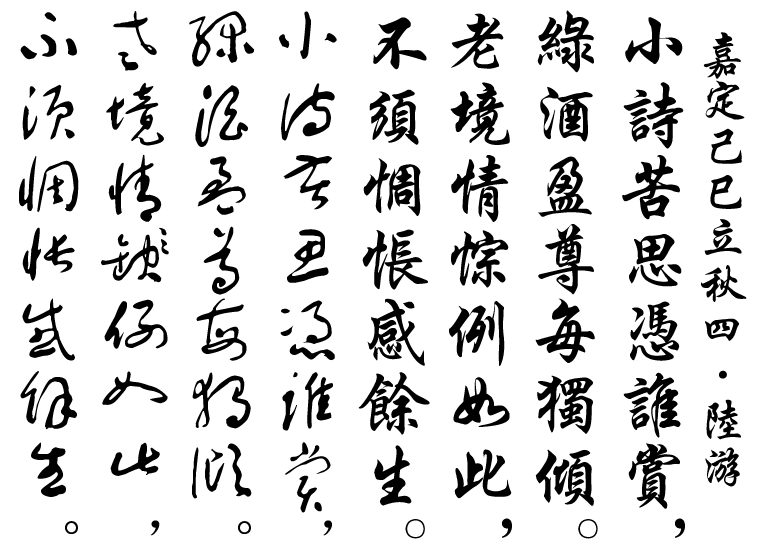 嘉定己巳立秋四·陸游
小詩苦思憑誰賞，
綠酒盈尊每獨傾。
老境情悰例如此，
不須惆悵感餘生。
小詩苦思憑誰賞，
綠酒盈尊每獨傾。
老境情悰例如此，
不須惆悵感餘生。